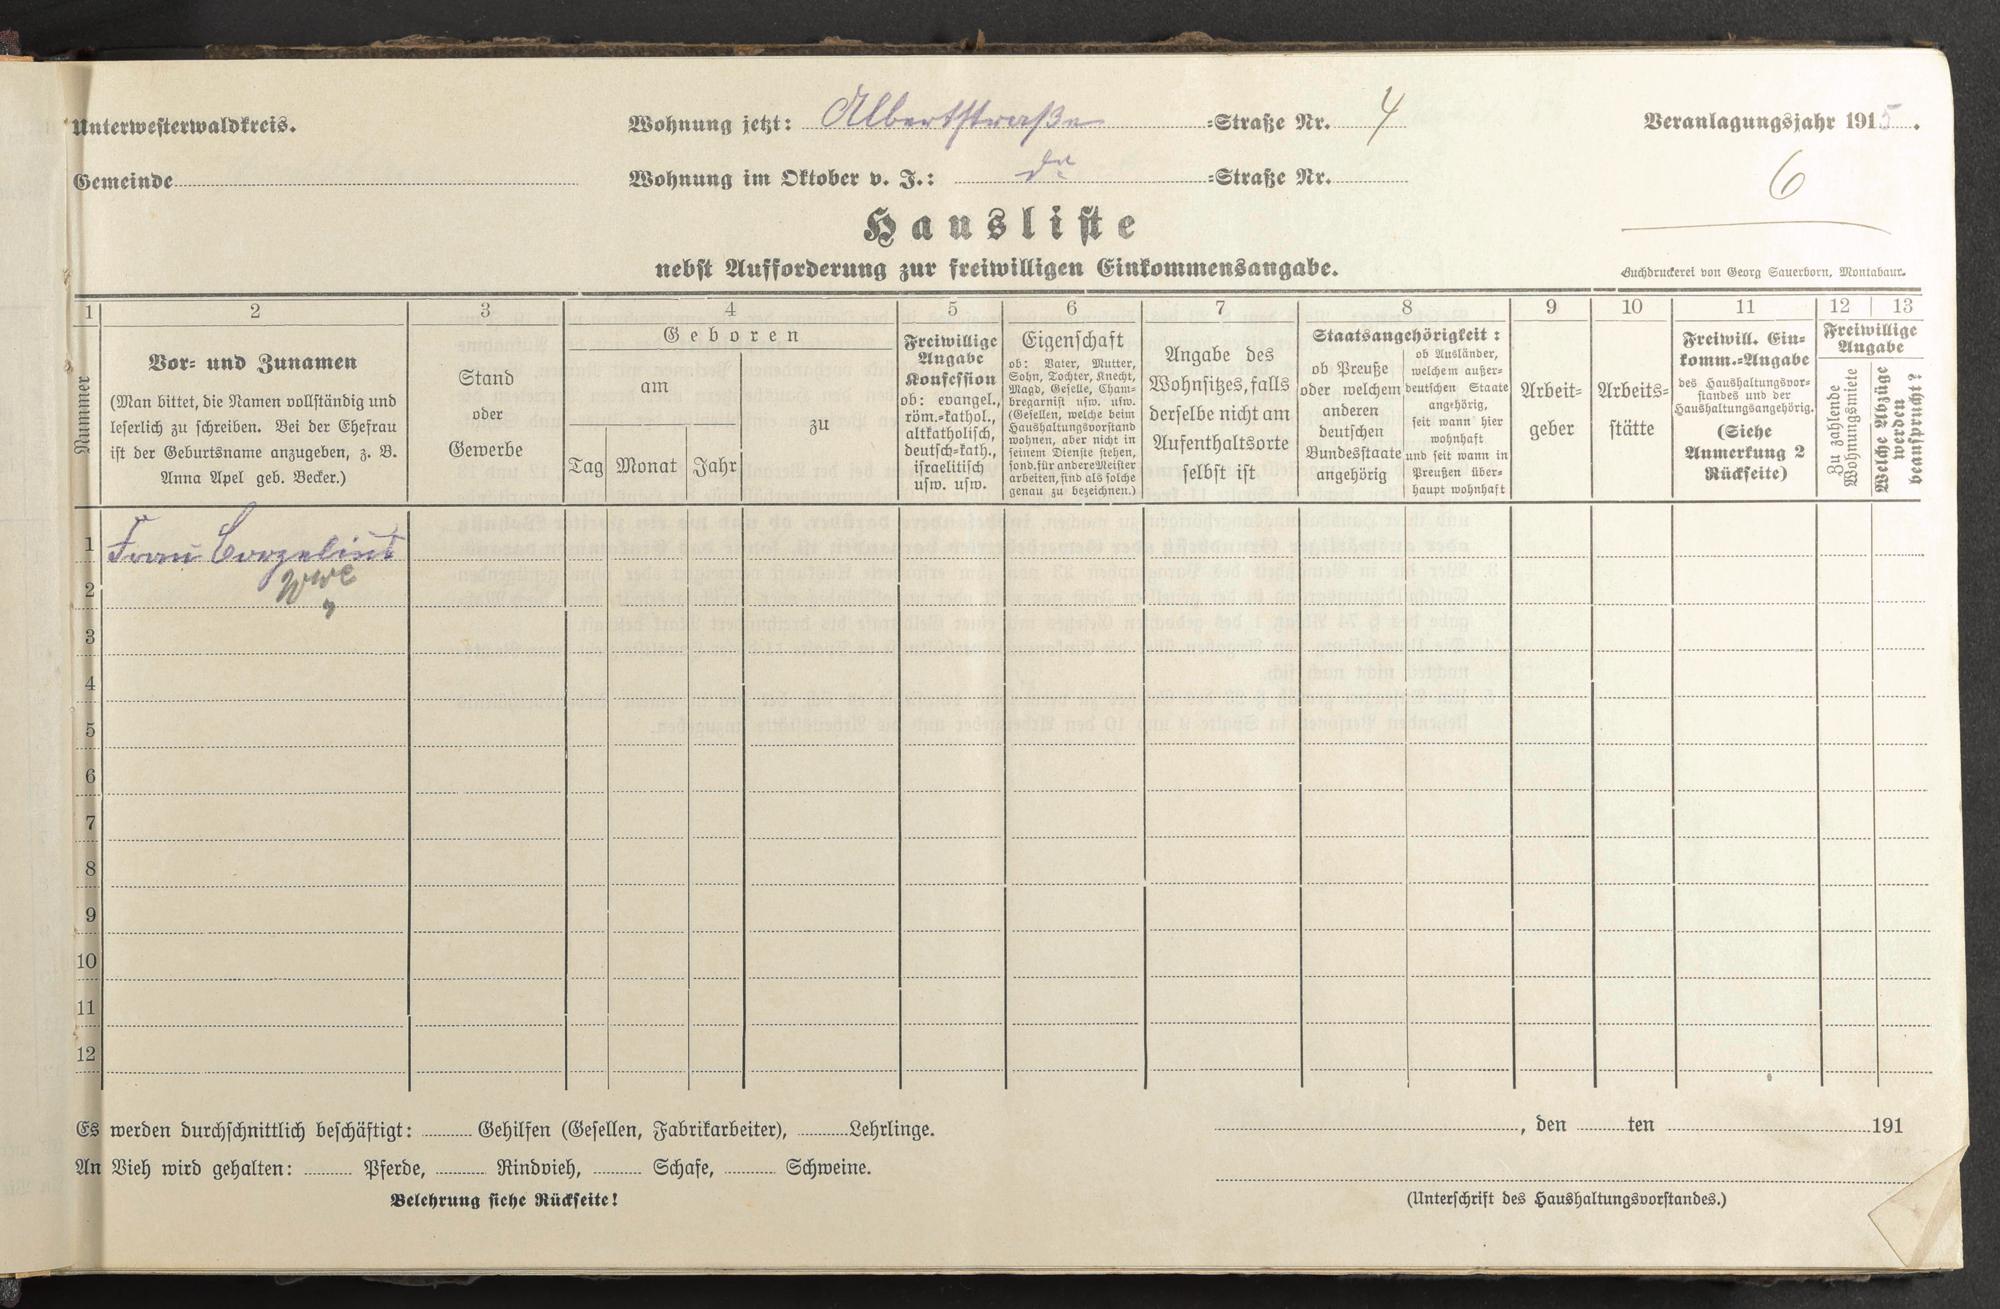 Unterwesterwaldkreis.
Wohnung jetzt: Albertstraße =Straße Nr. 4
Veranlagungsjahr 1915.
Gemeinde
Wohnung im Oktober v. J.: do =Straße Nr.
6
Hausliste
nebst Aufforderung zur freiwilligen Einkommensangabe.
Buchdruckerei von Georg Sauerborn, Montabaur.
1 2 3 4 5 6 7 8 9 10 11 12 13
Nummer
Vor= und Zunamen
(Man bittet, die Namen vollständig und
leserlich zu schreiben. Bei der Ehefrau
ist der Geburtsname anzugeben, z. B.
Anna Apel geb. Becker.)
Stand
oder
Gewerbe
Geboren
am
zu
Tag Monat Jahr
Freiwillige
Angabe
Konfession
ob: evangel.,
röm.=kathol.,
altkatholisch,
deutsch=kath.,
israelitisch
usw. usw.
Eigenschaft
ob: Vater, Mutter,
Sohn, Tochter, Knecht,
Magd, Geselle, Cham=
bregarnist usw. usw.
(Gesellen, welche beim
Haushaltungsvorstand
wohnen, aber nicht in
seinem Dienste stehen,
sond. für andere Meister
arbeiten, sind als solche
genau zu bezeichnen.)
Angabe des
Wohnsitzes, falls
derselbe nicht am
Aufenthaltsorte
selbst ist
Staatsangehörigkeit:
ob Preuße
oder welchem
anderen
deutschen
Bundesstaate
angehörig
ob Ausländer,
welchem außer=
deutschen Staate
angehörig,
seit wann hier
wohnhaft
und seit wann in
Preußen über=
haupt wohnhaft
Arbeit=
geber
Arbeits=
stätte
Freiwill. Ein=
komm.=Angabe
des Haushaltungsvor=
standes und der
Haushaltungsangehörig.
(Siehe
Anmerkung 2
Rückseite)
Freiwillige
Angabe
Zu zahlende
Wohnungsmiete
Welche Abzüge
werden
beansprucht?
1 Frau Corzelius
Wwe
2
3
4
5
6
7
8
9
10
11
12
Es werden durchschnittlich beschäftigt: Gehilfen (Gesellen, Fabrikarbeiter), Lehrlinge.
, den ten 191
An Vieh wird gehalten: Pferde, Rindvieh, Schafe, Schweine.
Belehrung siehe Rückseite!
(Unterschrift des Haushaltungsvorstandes.)